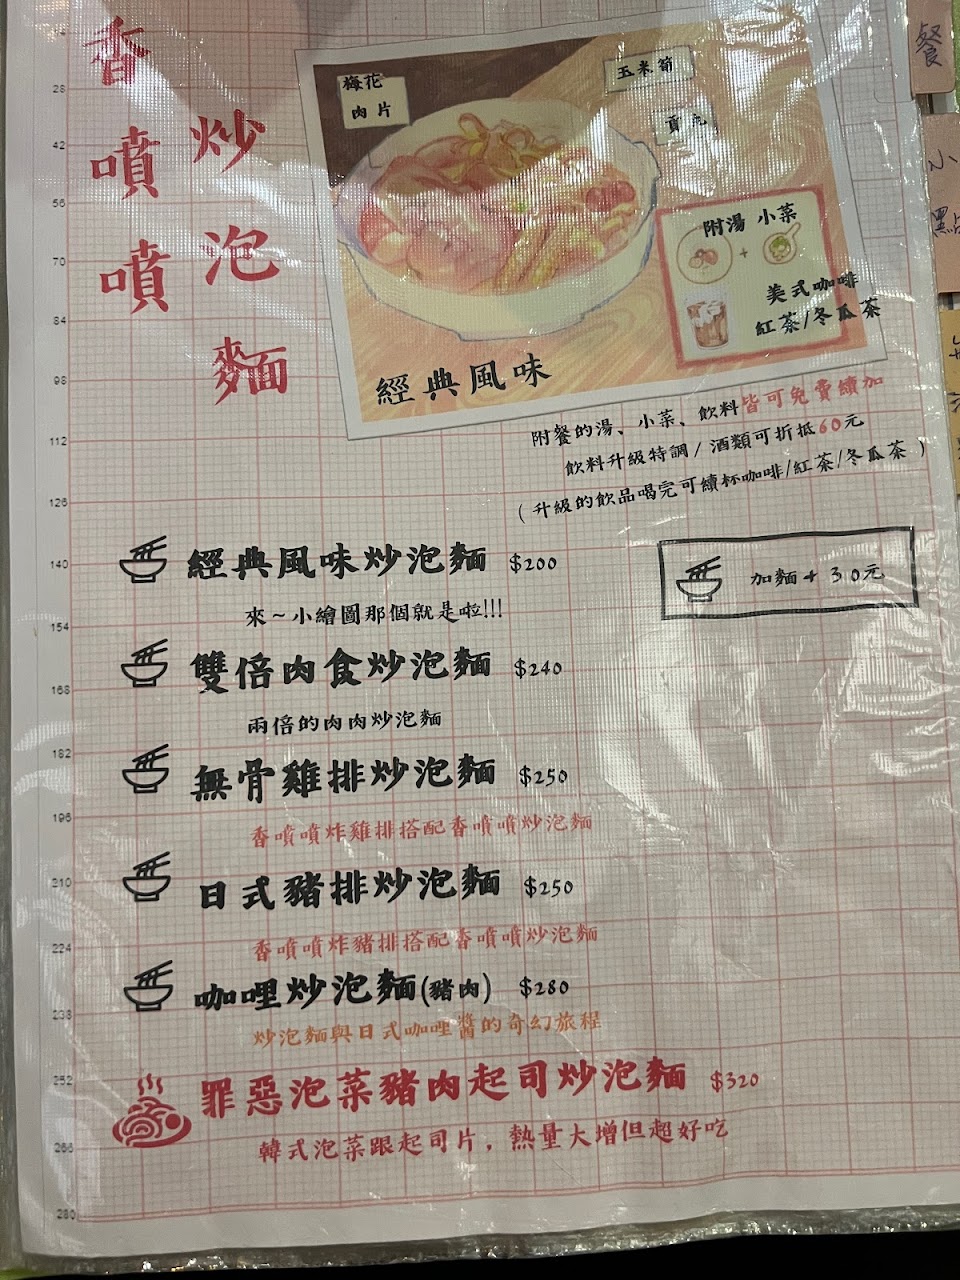 香噴噴
炒泡麵
梅花
肉片
玉米筍
附湯 小菜
+
美式咖啡
紅茶/冬瓜茶
經典風味
附餐的湯、小菜、飲料皆可免費續加
飲料升級特調/酒類可折抵60元
(升級的飲品喝完可續杯咖啡/紅茶/冬瓜茶)
經典風味炒泡麵 $200
加麵+30元
來~小繪圖那個就是啦!!!
雙倍肉食炒泡麵 $240
兩倍的肉肉炒泡麵
無骨雞排炒泡麵 $250
香噴噴炸雞排搭配香噴噴炒泡麵
日式豬排炒泡麵 $250
香噴噴炸豬排搭配香噴噴炒泡麵
咖哩炒泡麵(豬肉) $280
炒泡麵與日式咖哩醬的奇幻旅程
罪惡泡菜豬肉起司炒泡麵 $320
韓式泡菜跟起司片，熱量大增但超好吃
28
42
56
70
84
98
112
126
140
154
168
182
196
210
224
238
252
266
280
餐
小
點